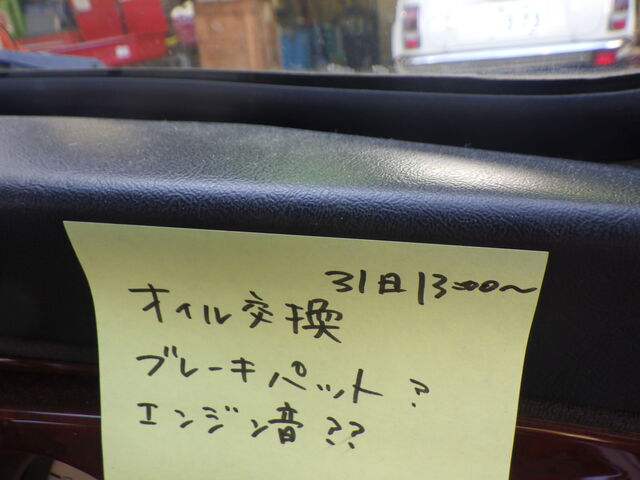 31日13:00〜
オイル交換
ブレーキパット?
エンジン音??